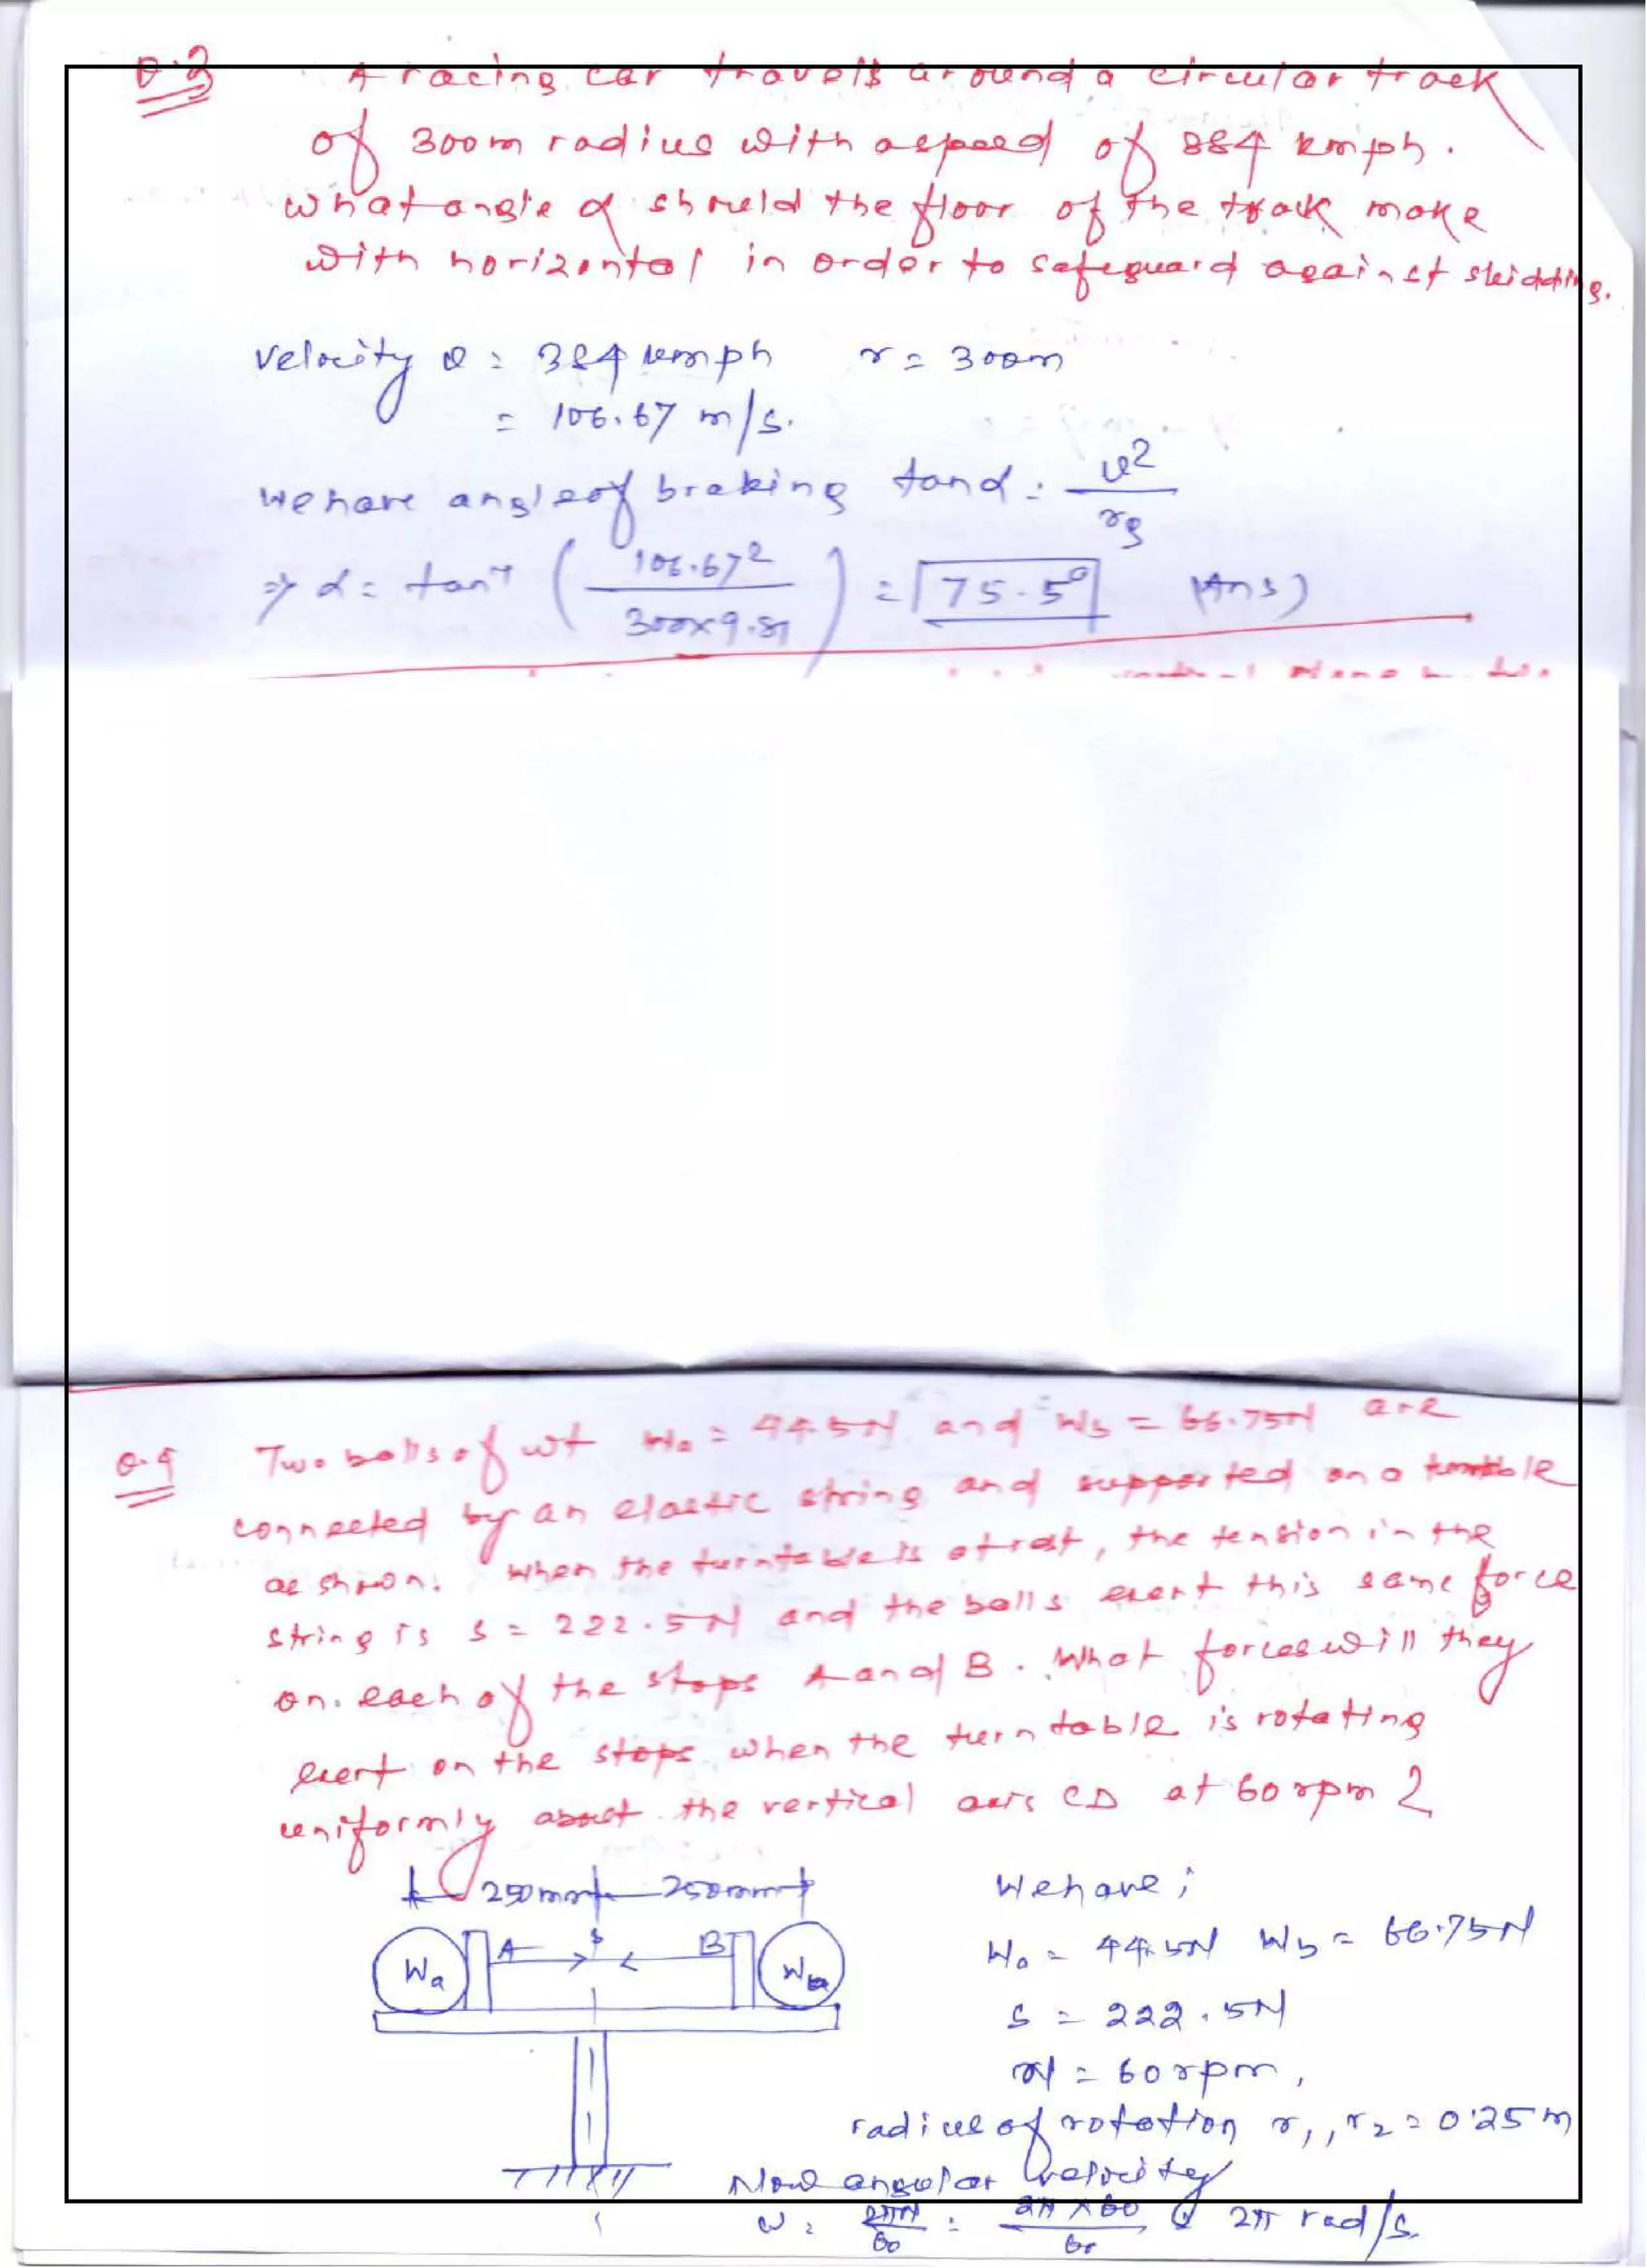 Q.3 A racing car travels around a circular track
of 300m radius with a speed of 384 kmph.
what angle α should the floor of the track make
with horizontal in order to safeguard against skidding.
velocity v = 384 kmph r = 300m
= 106.67 m/s.
we have angle of braking tan α = v²/rg
⇒ α = tan⁻¹ (106.67²/300×9.81) = 75.5° (Ans)
Q.4 Two balls of wt Wa = 44.5N and Wb = 66.75N are
connected by an elastic string and supported on a turntable
as shown. When the turntable is at rest, the tension in the
string is S = 222.5N and the balls exert this same force
on each of the stops A and B. What forces will they
exert on the stops when the turntable is rotating
uniformly about the vertical axis CD at 60 rpm?
250mm 250mm
Wa A s B Wb
We have;
Wa = 44.5N Wb = 66.75N
S = 222.5N
N = 60 rpm,
radius of rotation r₁, r₂ = 0.25m
Now angular velocity
ω = 2πN/60 = 2π×60/60 = 2π rad/s.